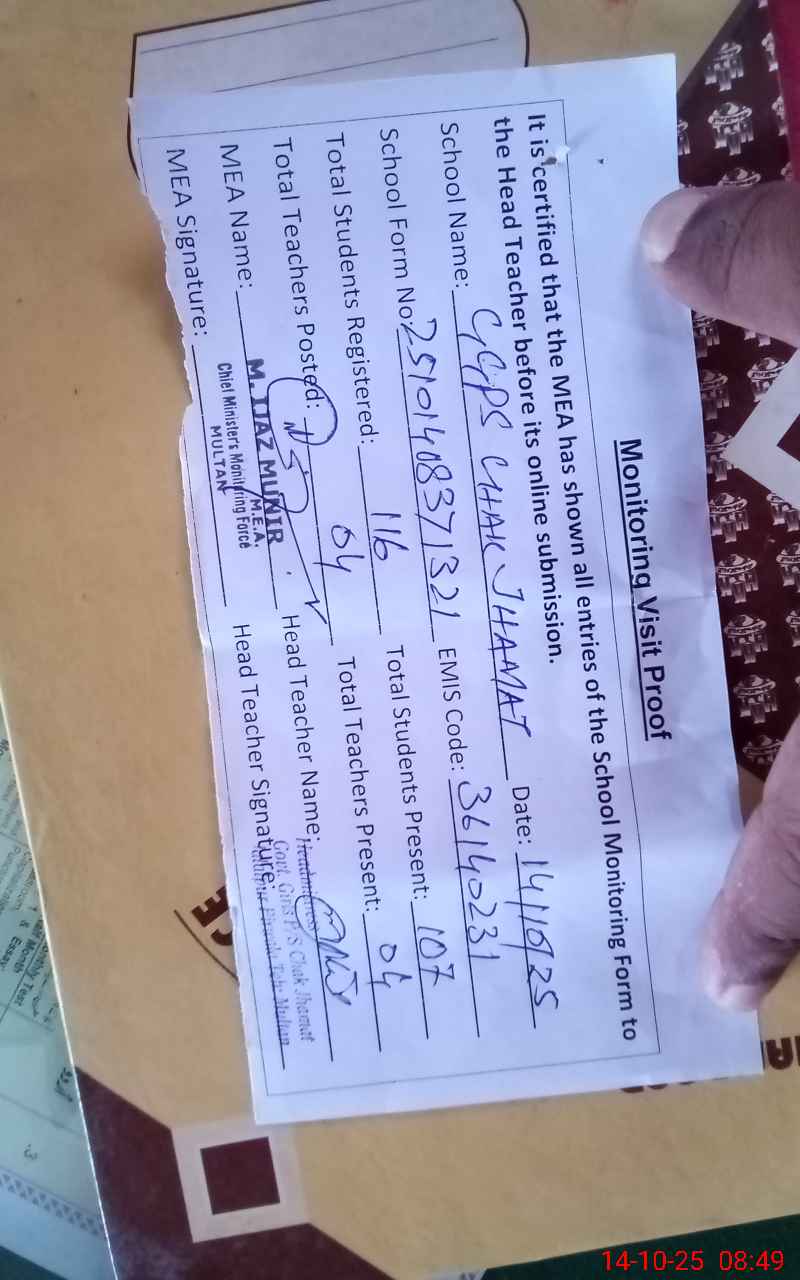 Monitoring Visit Proof
It is certified that the MEA has shown all entries of the School Monitoring Form to
the Head Teacher before its online submission.
School Name: GGPS CHAK JHAMAT Date: 14/10/25
School Form No: 25101408371321 EMIS Code: 36140231
Total Students Registered: 116 Total Students Present: 107
Total Teachers Posted: 04 Total Teachers Present: 04
MEA Name: M. IJAZ MUNIR Head Teacher Name:
M.E.A.
Chief Minister's Monitoring Force
MULTAN
MEA Signature: Head Teacher Signature:
Headmistress
Govt. Girls P/S Chak Jhamat
Multan
14-10-25 08:49